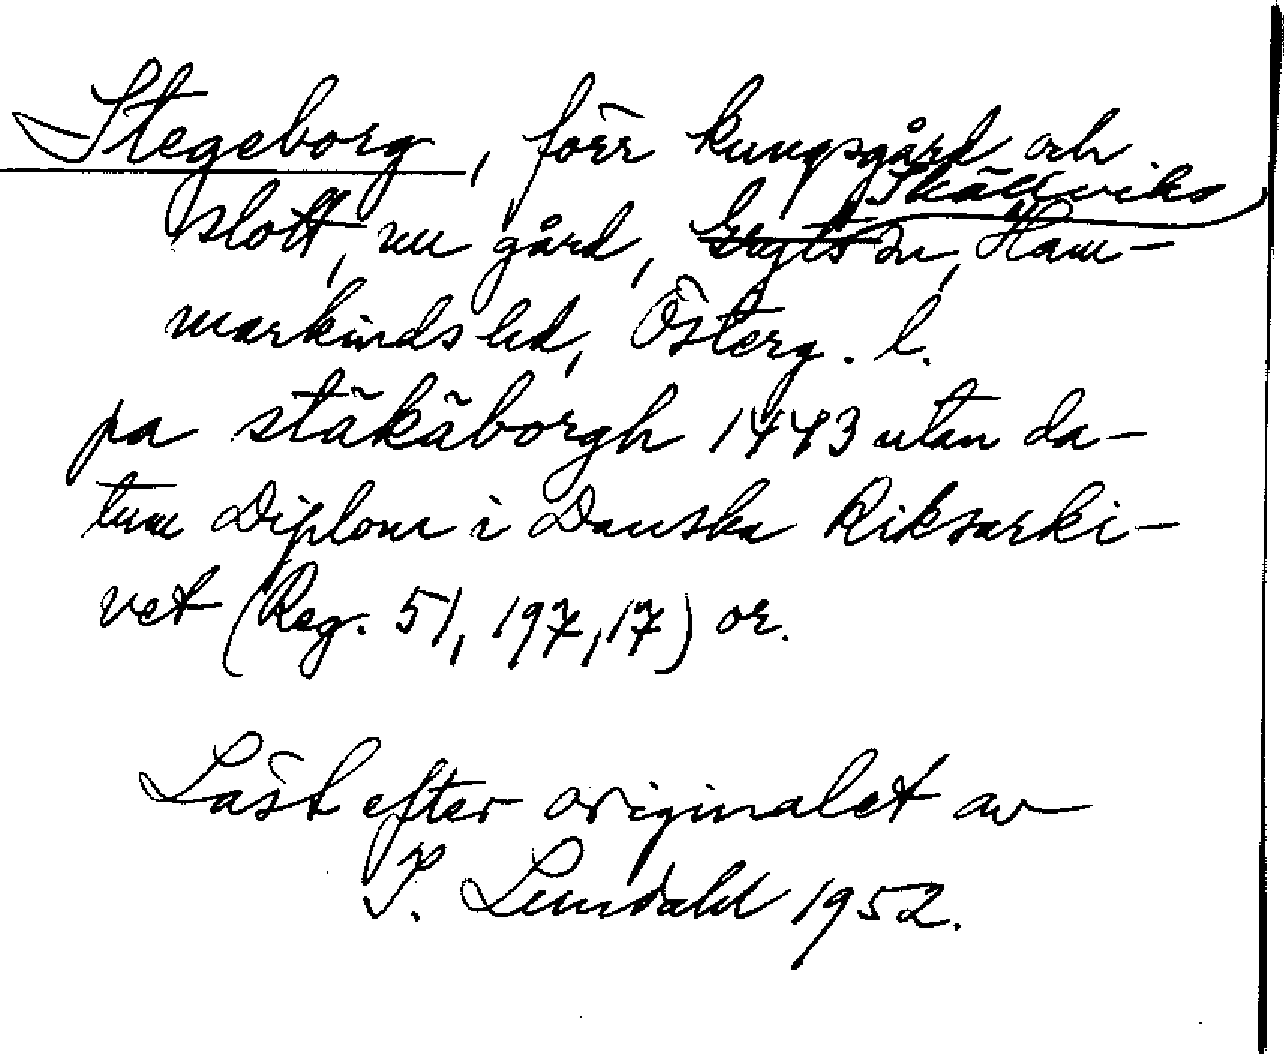 Stegeborg, förr kungsgård och
slott, nu gård, Skällviks sn, Ham-
markinds hd, Österg. l.
pa stäkäborgh 1443 utan da-
tum Diplom i Danska Riksarki-
vet (Reg. 51, 197, 17) or.
Läst efter originalet av
I. Lundahl 1952.